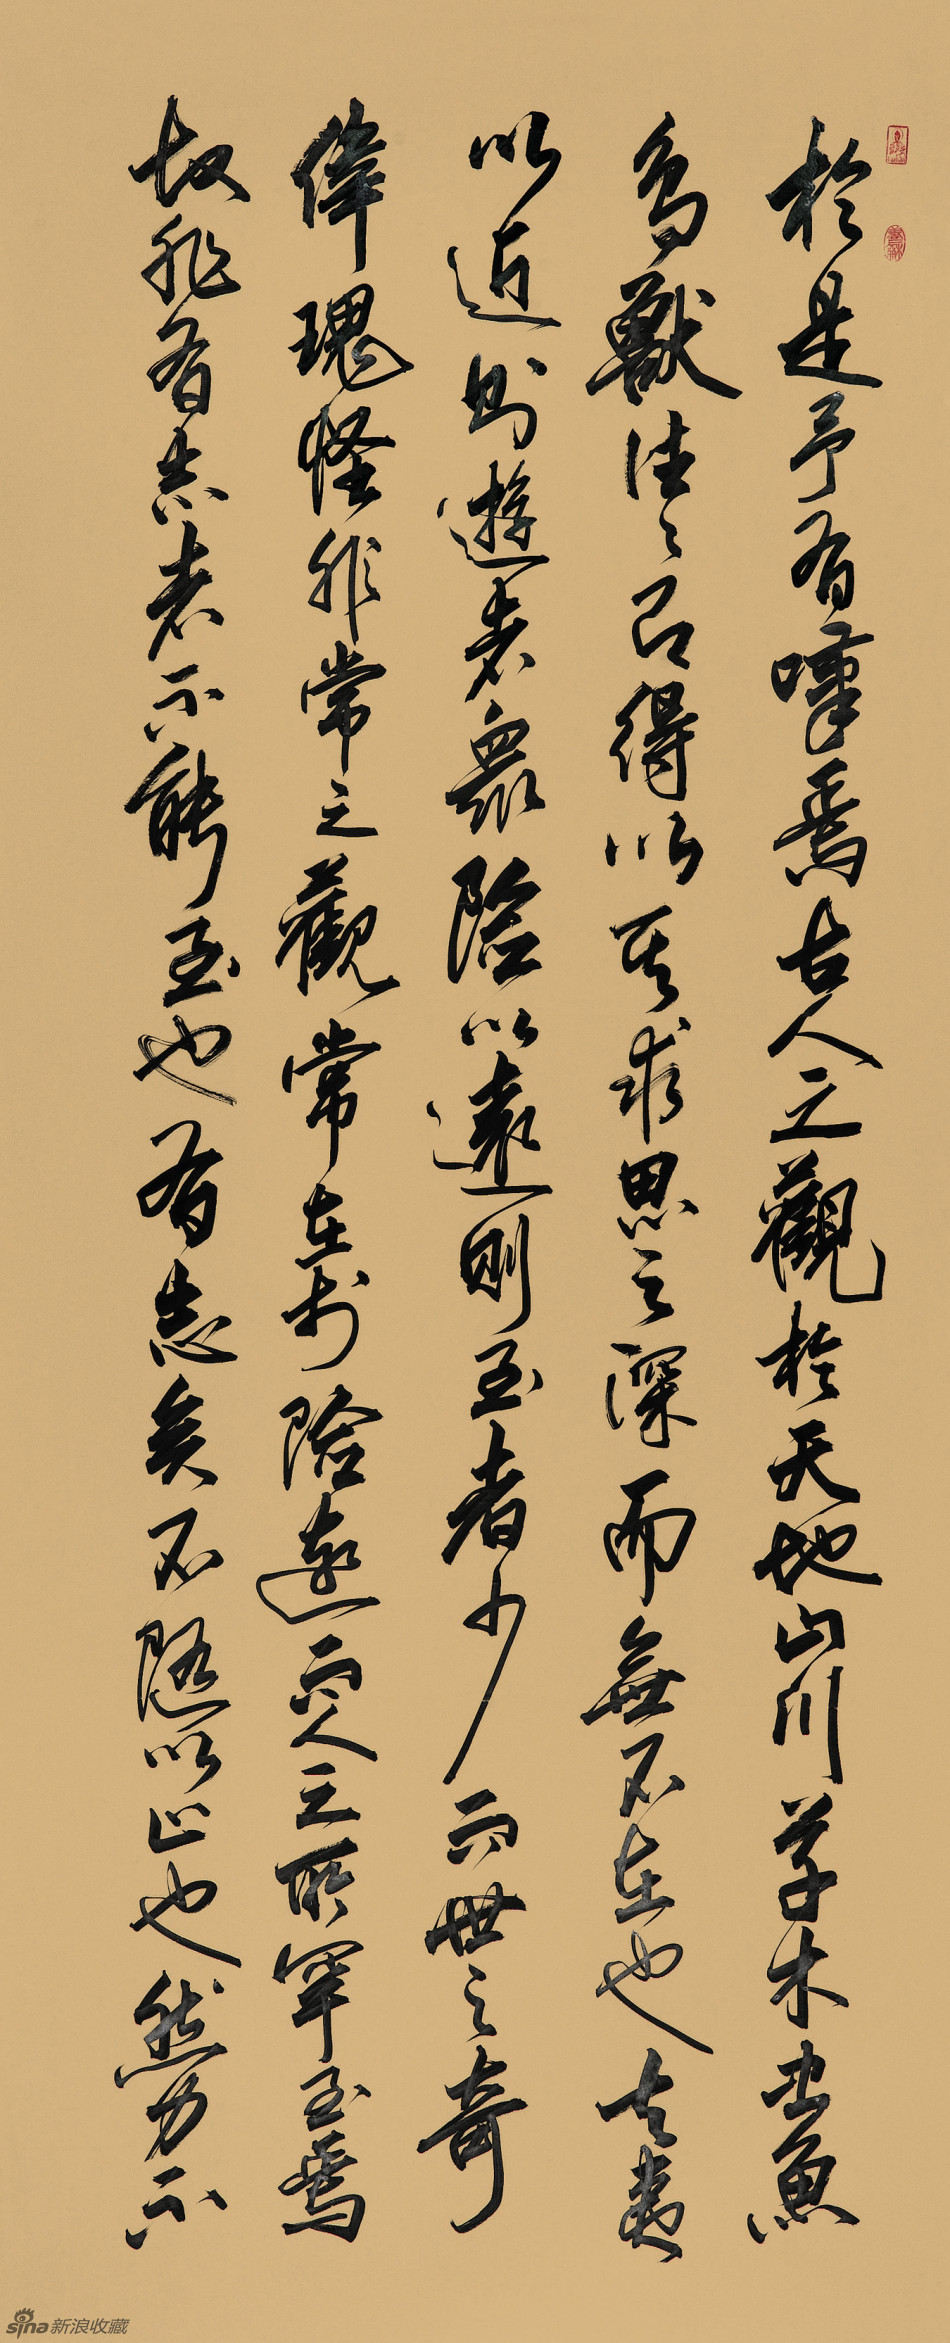 於是予有嘆焉古人之觀於天地山川草木虫魚
鳥獸往々得以其求思之深而無不在也夫夷
以近則遊者衆險以遠則至者少而世之奇
偉瑰怪非常之觀常在於險遠而人之所罕至焉
故非有志者不能至也有志矣不隨以止也然力不
sina新浪收藏